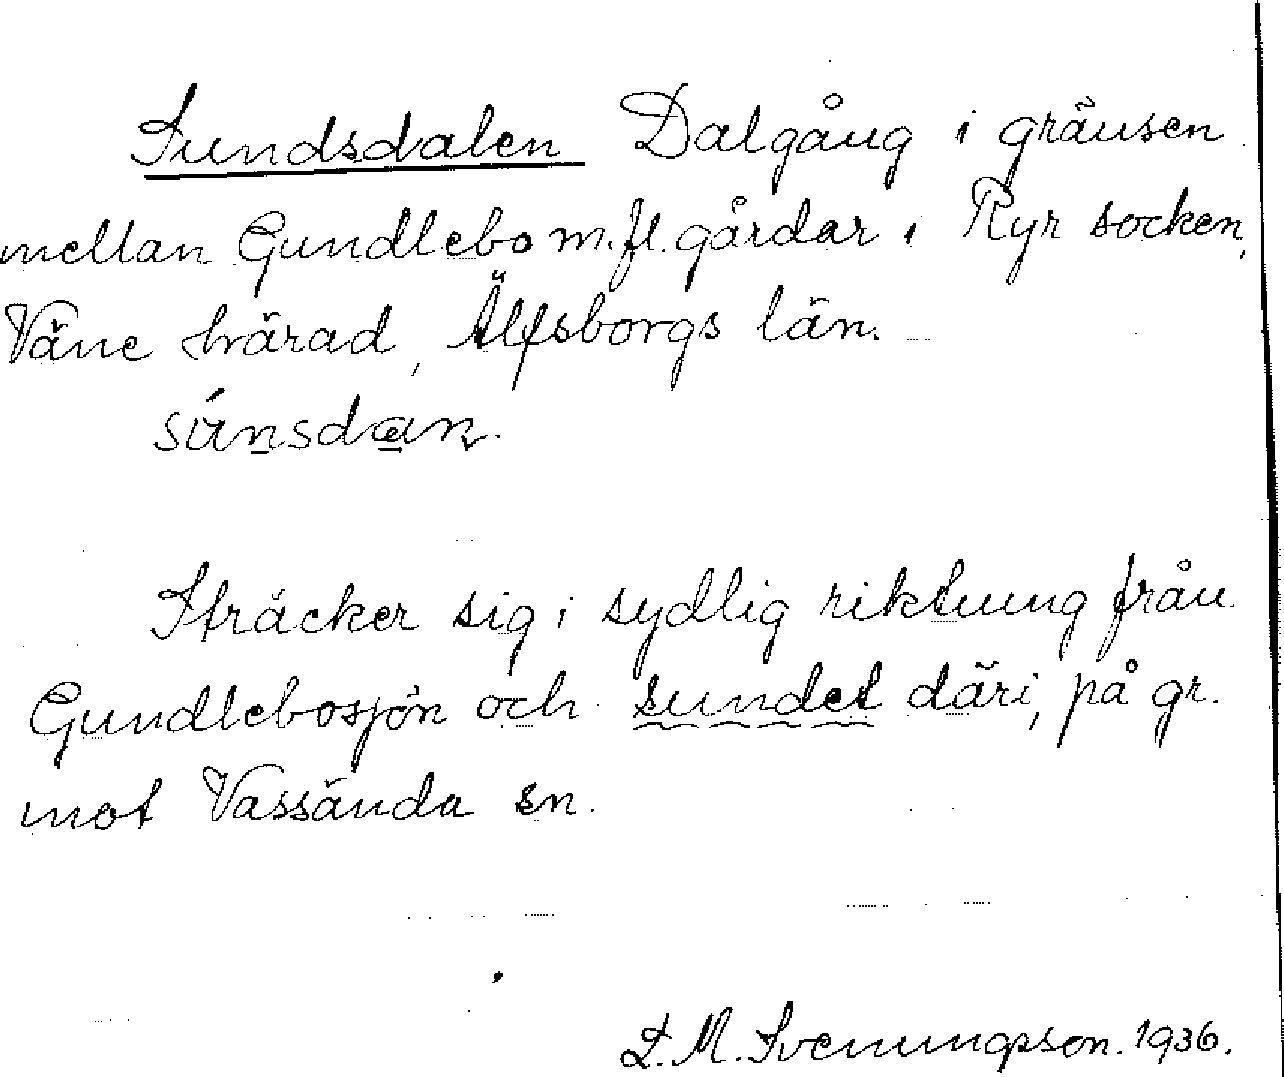 Sundsdalen Dalgång i gränsen
mellan Gundlebo m.fl. gårdar i Ryr socken,
Väne härad, Älfsborgs län.
súnsdan.
Sträcker sig i sydlig riktning från
Gundlebosjön och sundet däri, på gr.
mot Vassända sn.
L. M. Svenungsson. 1936.